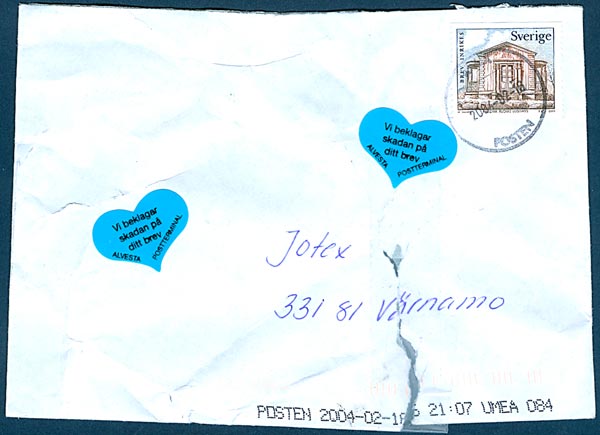 Sverige
BREV INRIKES
2004-02-18
POSTEN
Vi beklagar
skadan på
ditt brev
ALVESTA POSTTERMINAL
Vi beklagar
skadan på
ditt brev
ALVESTA POSTTERMINAL
Jotex
331 81 Värnamo
POSTEN 2004-02-18 21:07 UMEA 084